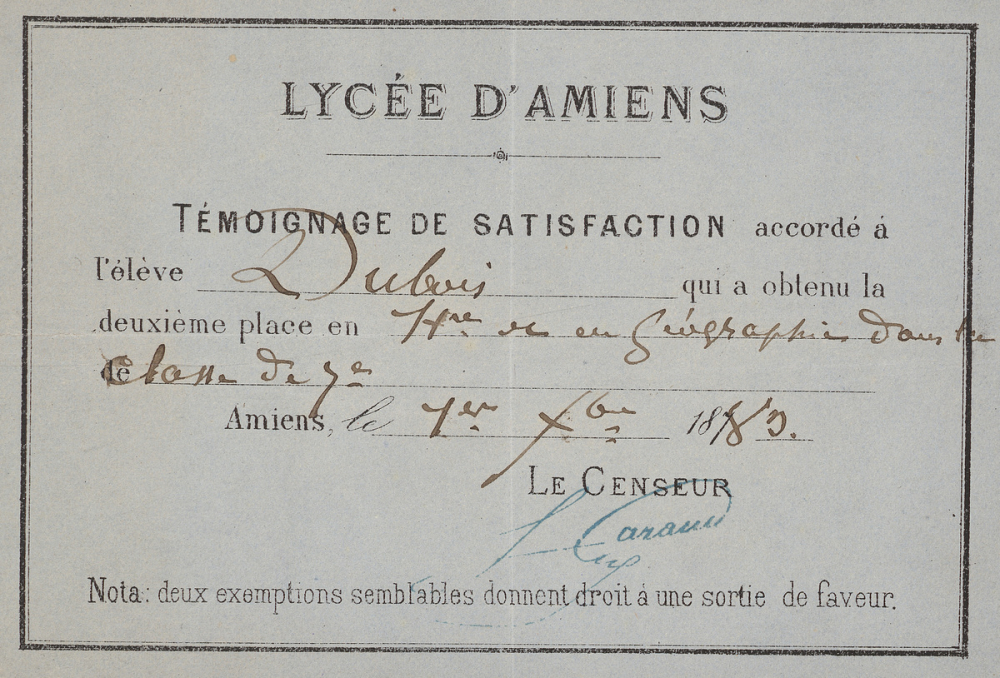 LYCÉE D'AMIENS
TÉMOIGNAGE DE SATISFACTION accordé á
l'élève Dubois qui a obtenu la
deuxième place en en Géographie dans la
de classe de 7e
Amiens, le 1er Xbre 1883.
LE CENSEUR
Nota: deux exemptions semblables donnent droit á une sortie de faveur.